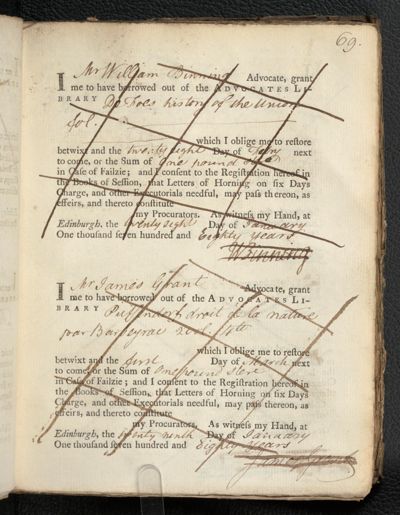 69.
I Mr William Binning Advocate, grant
me to have borrowed out of the ADVOCATES LI-
BRARY De Foes history of the Union
fol.
which I oblige me to reſtore
betwixt and the twenty eight Day of next
to come, or the Sum of One pound
in Caſe of Failzie; and I conſent to the Regiſtration hereof in
the Books of Seſſion, that Letters of Horning on ſix Days
Charge, and other Executorials needful, may paſs thereon, as
effeirs, and thereto conſtitute
my Procurators. As witneſs my Hand, at
Edinburgh, the twenty eight Day of January
One thouſand ſeven hundred and Eighty Years
W Binning
I Mr James Grant Advocate, grant
me to have borrowed out of the ADVOCATES LI-
BRARY Puffendorf droit de la nature
par Barbeyrac 2 vol. 4to
which I oblige me to reſtore
betwixt and the first Day of March next
to come, or the Sum of One pound
in Caſe of Failzie; and I conſent to the Regiſtration hereof in
the Books of Seſſion, that Letters of Horning on ſix Days
Charge, and other Executorials needful, may paſs thereon, as
effeirs, and thereto conſtitute
my Procurators. As witneſs my Hand, at
Edinburgh, the twenty ninth Day of January
One thouſand ſeven hundred and Eighty Years
James Grant